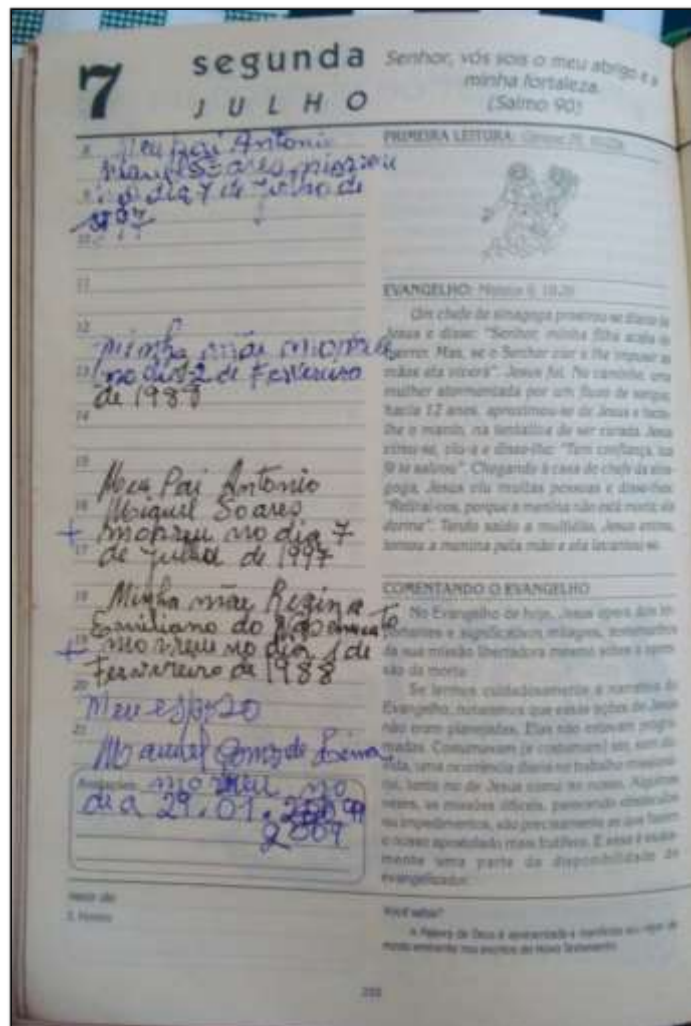 7 segunda
JULHO
Senhor, vós sois o meu abrigo e a
minha fortaleza.
(Salmo 90)
8 Meu pai Antonio
Miguel Soares morreu
9 no dia 7 de Julho de
10
11
12
minha mãe morreu
13 no dia 2 de Fevereiro
de 1988
14
15
Meu Pai Antonio
16 Miguel Soares
+ morreu no dia 7
17 de Julho de 1997
18 Minha mãe Regina
Emiliano do
19 + morreu no dia de
Fevereiro de 1988
20
Meu esposo
21
Manuel Gomes de Lima
Anotações: morreu no
dia 29.01.
2009
PRIMEIRA LEITURA:
EVANGELHO: Mateus 9, 18-26
Um chefe de sinagoga prostrou-se diante de
Jesus e disse: "Senhor, minha filha acaba de
morrer. Mas, se o Senhor vier e lhe impuser as
mãos ela viverá". Jesus foi. No caminho, uma
mulher atormentada por um fluxo de sangue,
havia 12 anos, aproximou-se de Jesus e tocou-
lhe o manto, na tentativa de ser curada. Jesus
virou-se, viu-a e disse-lhe: "Tem confiança, tua
fé te salvou". Chegando à casa do chefe da sina-
goga, Jesus viu muitas pessoas e disse-lhes:
"Retirai-vos, porque a menina não está morta; ela
dorme". Tendo saído a multidão, Jesus entrou,
tomou a menina pela mão e ela levantou-se.
COMENTANDO O EVANGELHO
No Evangelho de hoje, Jesus opera dois im-
portantes e significativos milagres, testemunhos
da sua missão libertadora mesmo sobre a opres-
são da morte.
Se lermos cuidadosamente a narrativa do
Evangelho, notaremos que estas ações de Jesus
não eram planejadas. Elas não estavam progra-
madas. Costumavam (e costumam) ser, sem dú-
vida, uma ocorrência diária no trabalho missioná-
rio, tanto no de Jesus como no nosso. Algumas
vezes, as missões difíceis, parecendo obstáculos
ou impedimentos, são precisamente as que fazem
o nosso apostolado mais frutífero. E essa é exata-
mente uma parte da disponibilidade do
evangelizador.
Você sabia?
A Palavra de Deus é apresentada e manifesta seu vigor de
modo eminente nos escritos do Novo Testamento.